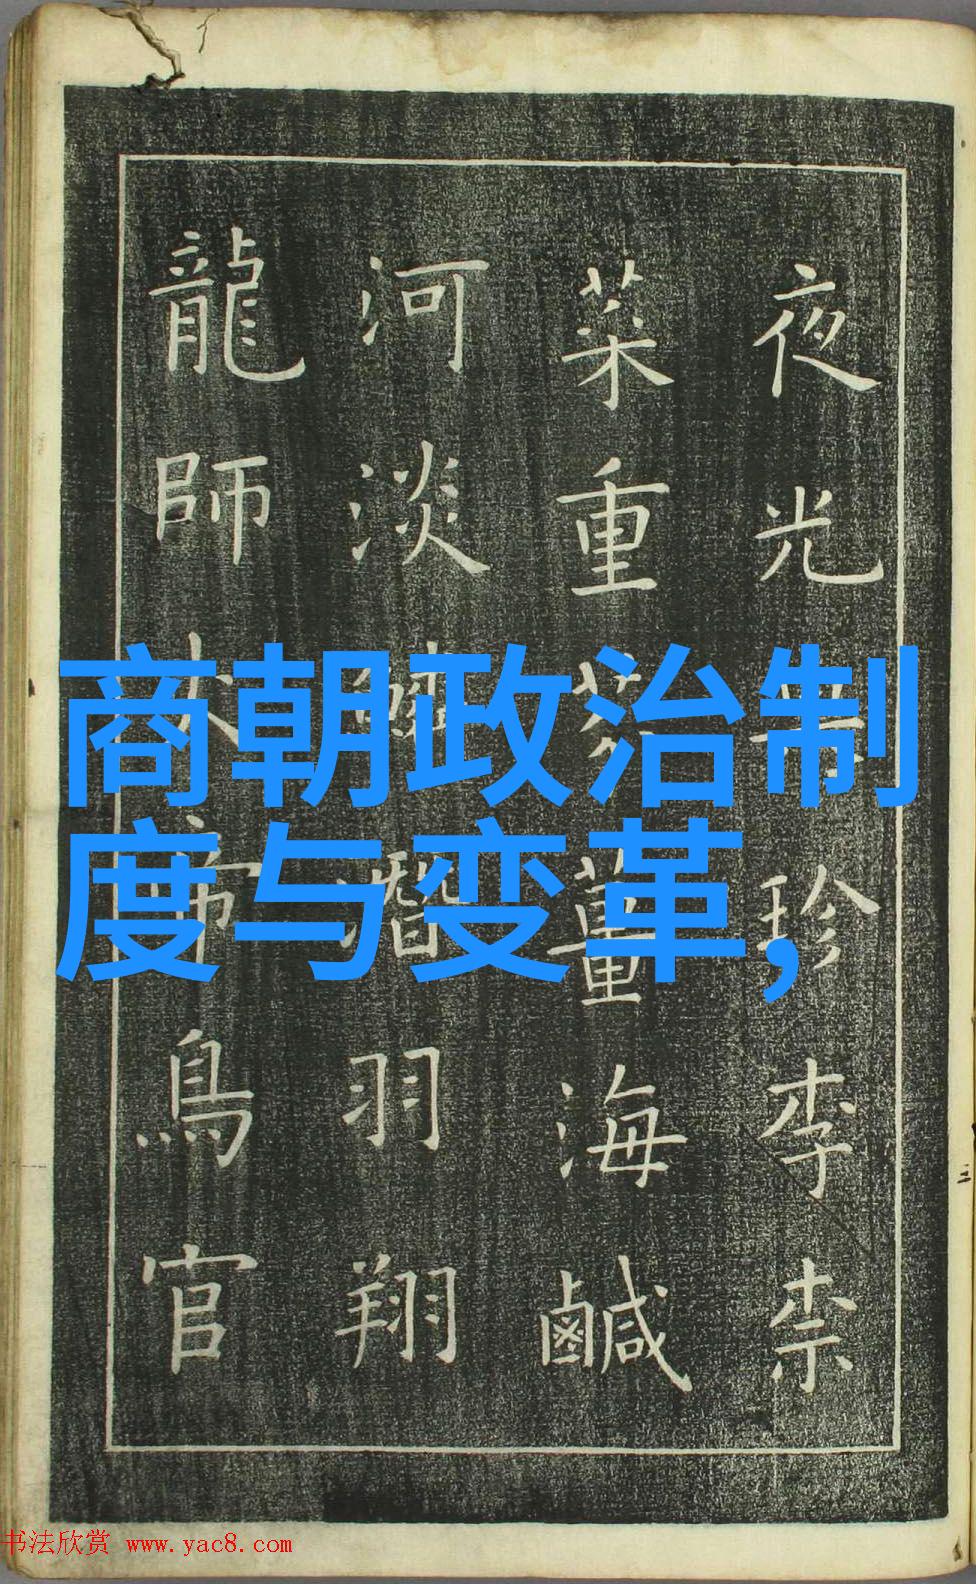 夜光果珍李柰
菜重芥薑海鹹
河淡鱗潛羽翔
龍師火帝鳥官
商朝政治制
度与变革,
书法欣赏 www.yac8.com